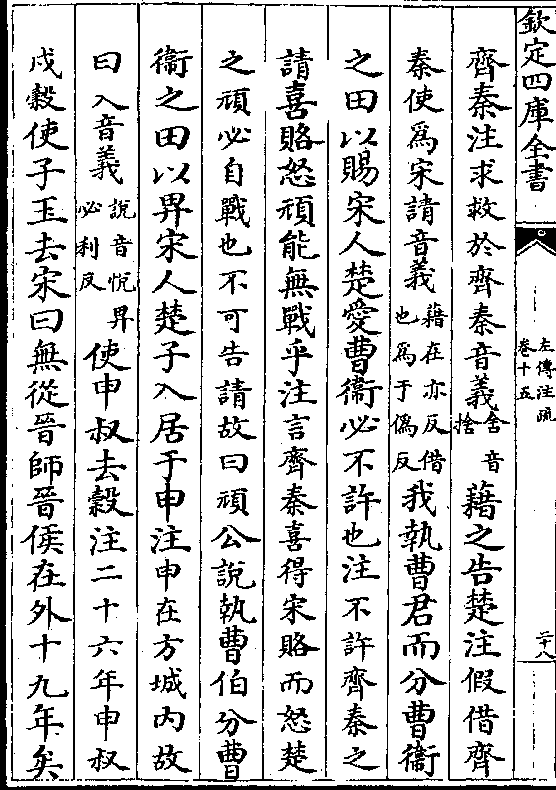 欽定四庫全書
左傳注疏
卷十五
二十八
齊秦注求救於齊秦音義舍音捨藉之告楚注假借齊
秦使為宋請音義藉在亦反借也為于偽反我執曹君而分曹衛
之田以賜宋人楚愛曹衛必不許也注不許齊秦之
請喜賂怒頑能無戰乎注言齊秦喜得宋賂而怒楚
之頑必自戰也不可告請故曰頑公說執曹伯分曹
衛之田以畀宋人楚子入居于申注申在方城内故
曰入音義說音悅畀必利反使申叔去穀注二十六年申叔
戍穀使子玉去宋曰無從晉師晉侯在外十九年矣